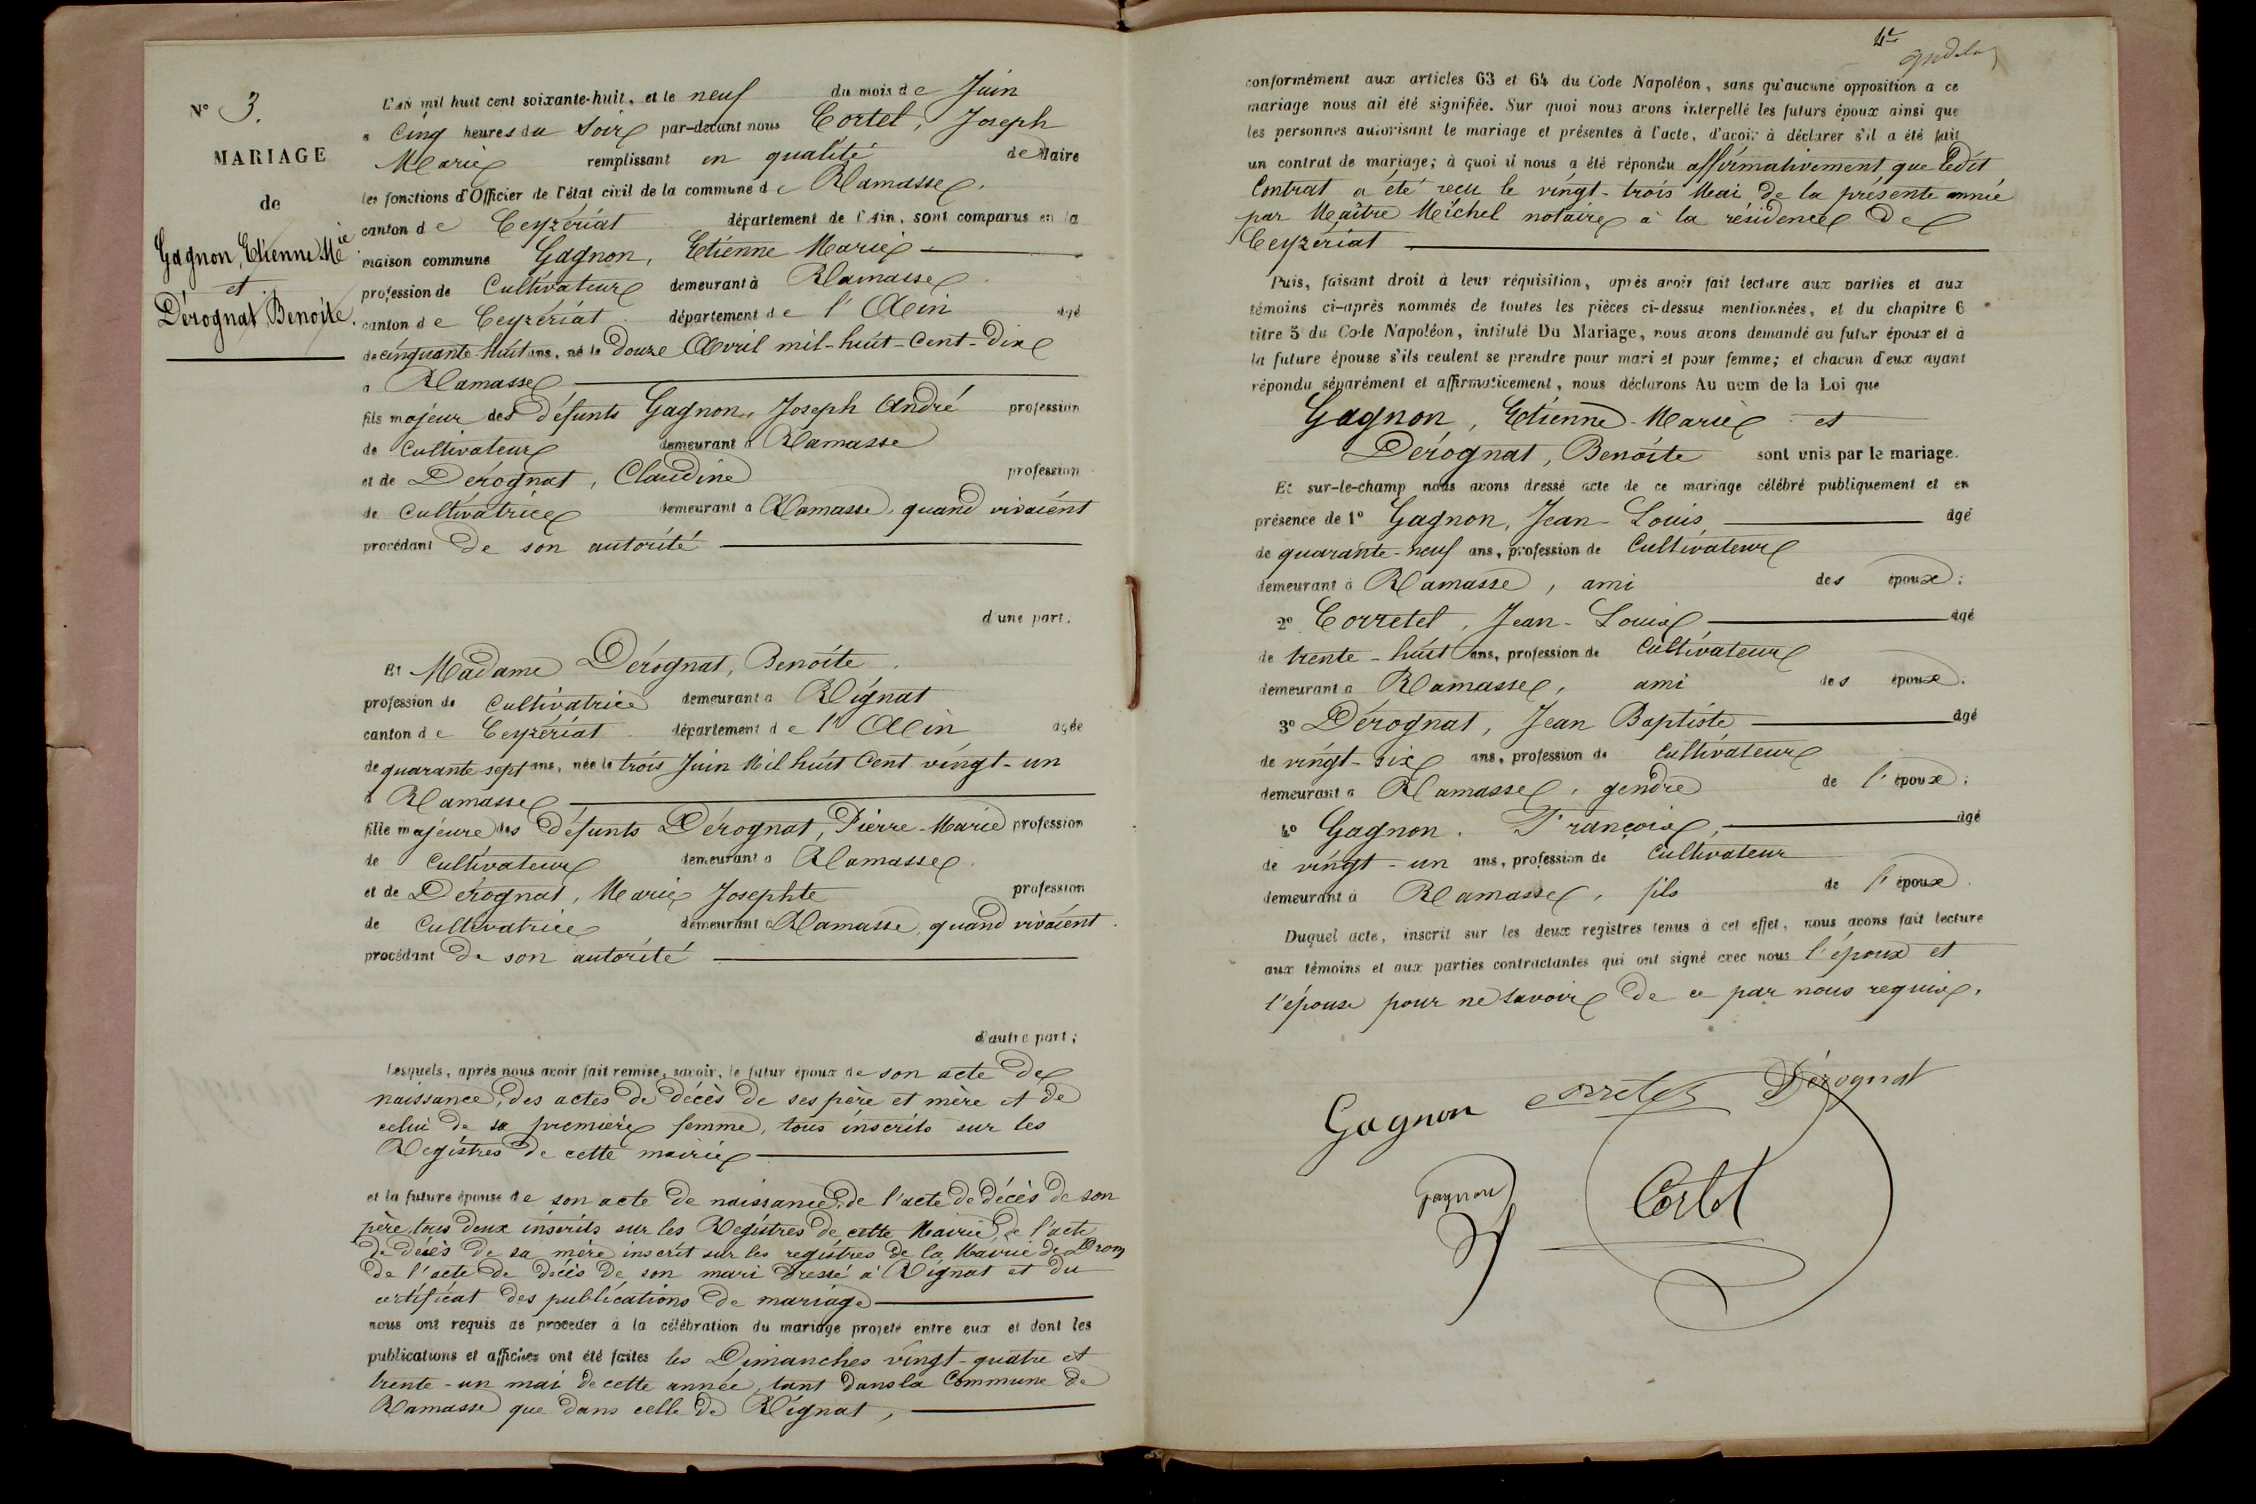 N° 3.
MARIAGE
de
Gagnon, Etienne Mie
et
Dérognat, Benoite.
L'an mil huit cent soixante-huit, et le neuf du mois de Juin
a Cinq heures du Soir par-devant nous Cortet, Joseph
Marie remplissant en qualité de Maire
les fonctions d'Officier de l'état civil de la commune de Ramasse,
canton de Ceyzériat département de l'Ain, sont comparus en la
maison commune Gagnon, Etienne Marie
profession de Cultivateur demeurant à Ramasse
canton de Ceyzériat département de l'Ain agé
de cinquante-huit ans, né le Douze Avril mil-huit-Cent-Dix
a Ramasse
fils majeur des défunts Gagnon, Joseph André profession
de Cultivateur demeurant a Ramasse
et de Dérognat, Claudine profession
de Cultivatrice demeurant a Ramasse, quand vivaient
procédant de son autorité
d'une part.
Et Madame Dérognat, Benoite.
profession de Cultivatrice demeurant a Rignat
canton de Ceyzériat département de l'Ain agée
de quarante sept ans, née le trois Juin Mil huit Cent vingt-un
à Ramasse
fille majeure des Défunts Dérognat, Pierre-Marie profession
de Cultivateur demeurant a Ramasse.
et de Dérognat, Marie Josephte profession
de Cultivatrice demeurant a Ramasse, quand vivaient.
procédant de son autorité
d'autre part;
Lesquels, après nous avoir fait remise, savoir, le futur époux de son acte de
naissance, des actes de décès de ses père et mère et de
celui de sa première femme, tous inscrits sur les
Registres de cette mairie
et la future épouse de son acte de naissance, de l'acte de décès de son
père, tous deux inscrits sur les Registres de cette Mairie, de l'acte
de décès de sa mère inscrit sur les registres de la Mairie de Drom
de l'acte de décès de son mari dressé à Rignat et du
certificat des publications de mariage
nous ont requis de proceder à la célébration du mariage projeté entre eux et dont les
publications et affiches ont été faites les Dimanches vingt-quatre et
trente-un mai de cette année, tant dans la Commune de
Ramasse que dans celle de Rignat,
conformément aux articles 63 et 64 du Code Napoléon, sans qu'aucune opposition a ce
mariage nous ait été signifiée. Sur quoi nous avons interpellé les futurs époux ainsi que
les personnes autorisant le mariage et présentes à l'acte, d'avoir à déclarer s'il a été fait
un contrat de mariage; à quoi il nous a été répondu affirmativement que Ledit
Contrat a été reçu le vingt-trois Mai de la présente année
par Maître Michel notaire à la résidence de
Ceyzériat
Puis, faisant droit à leur réquisition, après avoir fait lecture aux parties et aux
témoins ci-après nommés de toutes les pièces ci-dessus mentionnées, et du chapitre 6
titre 5 du Code Napoléon, intitulé Du Mariage, nous avons demandé au futur époux et à
la future épouse s'ils veulent se prendre pour mari et pour femme; et chacun d'eux ayant
répondu séparément et affirmativement, nous déclarons Au nom de la Loi que
Gagnon, Etienne-Marie et
Dérognat, Benoîte sont unis par le mariage.
Et sur-le-champ nous avons dressé acte de ce mariage célébré publiquement et en
présence de 1° Gagnon, Jean-Louis agé
de quarante-neuf ans, profession de Cultivateur
demeurant à Ramasse, ami des époux;
2° Corretel, Jean-Louis agé
de trente-huit ans, profession de Cultivateur
demeurant a Ramasse, ami des époux.
3° Dérognat, Jean Baptiste agé
de vingt-six ans, profession de Cultivateur
demeurant a Ramasse, gendre de l'époux;
4° Gagnon. François, agé
de vingt-un ans, profession de Cultivateur
demeurant à Ramasse, fils de l'époux.
Duquel acte, inscrit sur les deux registres tenus à cet effet, nous avons fait lecture
aux témoins et aux parties contractantes qui ont signé avec nous l'époux et
l'épouse pour ne savoir de ce par nous requis.
Gagnon Corretel Dérognat
Gagnon Cortet